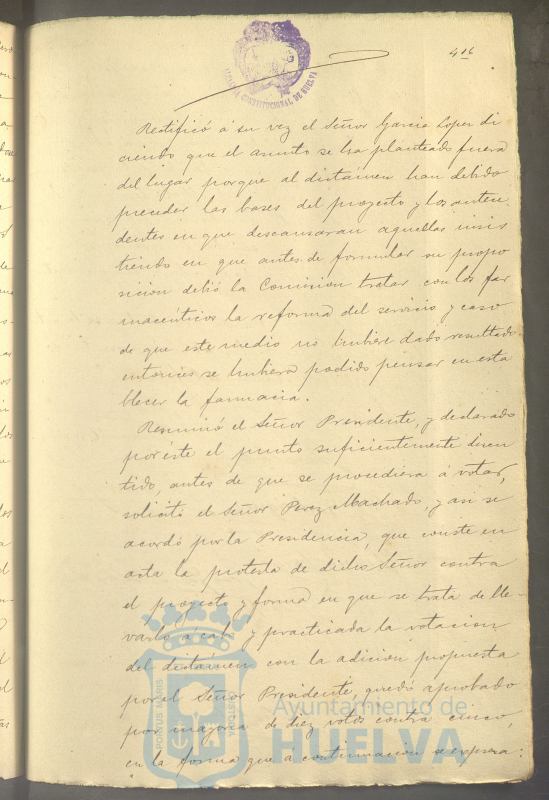 416
ALCALDIA CONSTITUCIONAL DE HUELVA
Rectificó á su vez el Señor Garcia Lopez di
ciendo que el asunto se ha planteado fuera
del lugar porque al dictámen han debido
preceder las bases del proyecto y los antece
dentes en que descansaran aquellas insis
tiendo en que antes de formular su propo
sicion debió la Comision tratar con los far
macéuticos la reforma del servicio y caso
de que este medio no hubiere dado resultado
entonces se hubiera podido pensar en esta
blecer la farmacia.
Resumió el Señor Presidente, y declarado
por éste el punto suficientemente discu
tido, antes de que se procediera á votar,
solicitó el Señor Perez Machado, y asi se
acordó por la Presidencia, que conste en
acta la protesta de dicho Señor contra
el proyecto y forma en que se trata de lle-
varlo á cabo y practicada la votacion
del dictámen con la adicion propuesta
por el Señor Presidente, quedó aprobado
por mayoria de diez votos contra cinco,
en la forma que a continuacion se expresa:
Ayuntamiento de
HUELVA